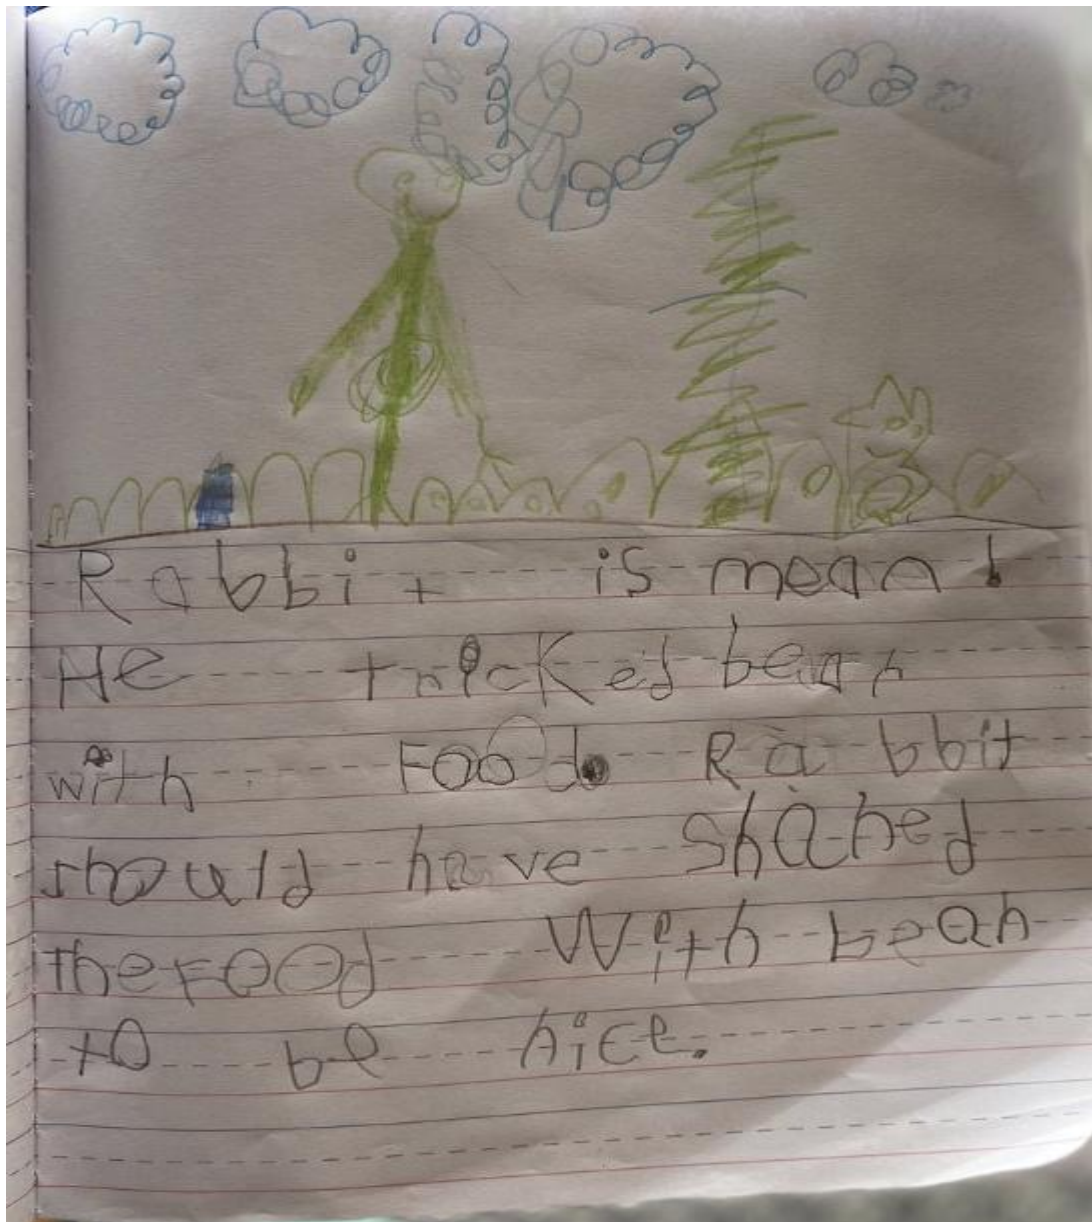 Rabbit is mean!
He tricked bear
with Food. Rabbit
should have shared
the Food With bear
to be nice.